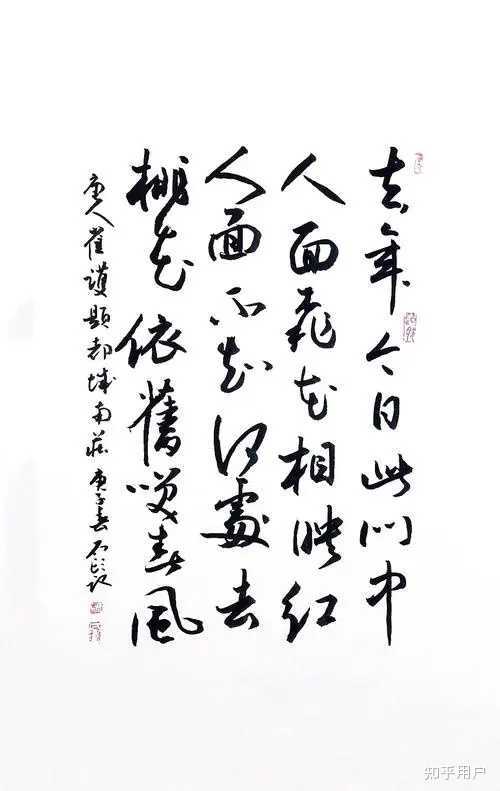 去年今日此门中
人面桃花相映红
人面不知何處去
桃花依舊笑春風
唐人崔護題都城南莊 庚子春
知乎用户